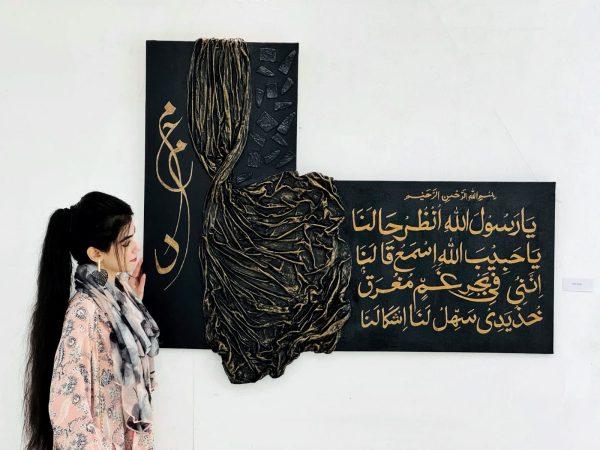 بِسْمِ اللهِ الرَّحْمٰنِ الرَّحِيْمِ
يَارَسُوْلَ اللهِ اُنْظُرْحَالَنَا
يَاحَبِيْبَ اللهِ اِسْمَعْ قَالَنَا
اِنَّنِي فِي بَحْرِ غَمٍّ مُغْرَقٌ
خُذْيَدِىْ سَهِّلْ لَنَا اِشْكَالَنَا